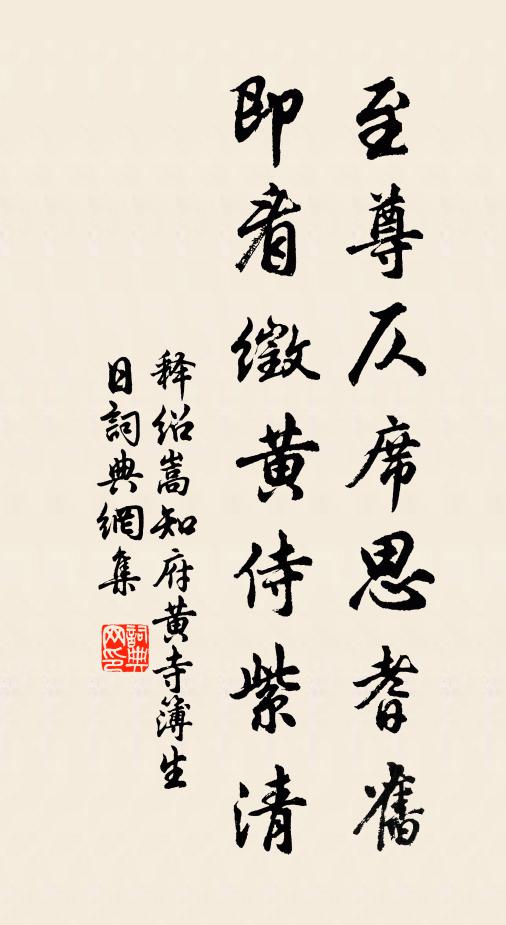 至尊仄席思耆舊
即看徵黃侍紫清
释绍嵩知府黄寺簿生
日詞典網集
詞典
网印